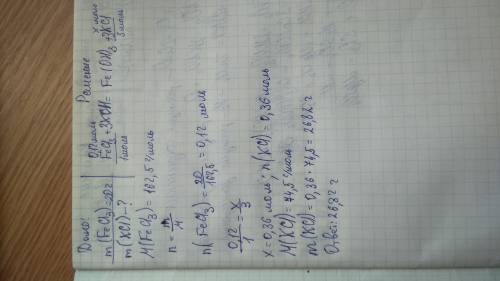 Дано: Решение
m(FeCl₃)=20г 0,12 моль x моль
m(KCl)-? FeCl₃ + 3KOH = Fe(OH)₃ + 3KCl
1 моль 3 моль
M(FeCl₃) = 162,5 г/моль
n = m/M
n(FeCl₃) = 20/162,5 = 0,12 моль
0,12/1 = x/3
x = 0,36 моль; n(KCl) = 0,36 моль
M(KCl) = 74,5 г/моль
m(KCl) = 0,36 · 74,5 = 26,82 г
Ответ: 26,82 г